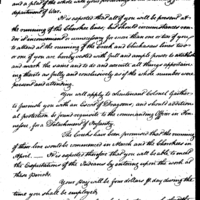 and a plat of the whole with your proceedings to the
department of War.
It is expected that all of you will be present at
the running of the Cherokee line; but should circumstances render
it inconvenient or unnecessary for more than one or two of you
to attend at the running of the Creek and Chickasaw lines one
or two of you are hereby vested with full and ample powers to ascertain
and mark the same and to do and execute all things appertaining
thereto as fully and conclusively as if the whole number were
present and attending.
You will apply to Lieutenant Colonel Gaither
to furnish you with an Escort of Dragoons, and should additional
protection be found requisite to the commanding Officer in Tennessee,
for a Detachment of Infantry.
The Creeks have been promised that the running
of their line would be commenced in March and the Cherokees in
April. It is expected therefore that you will be able to meet
the Expectations of the Indians by entering upon the work at
these periods.
Your pay will be four dollars ₱ day during the
time you shall be employed,